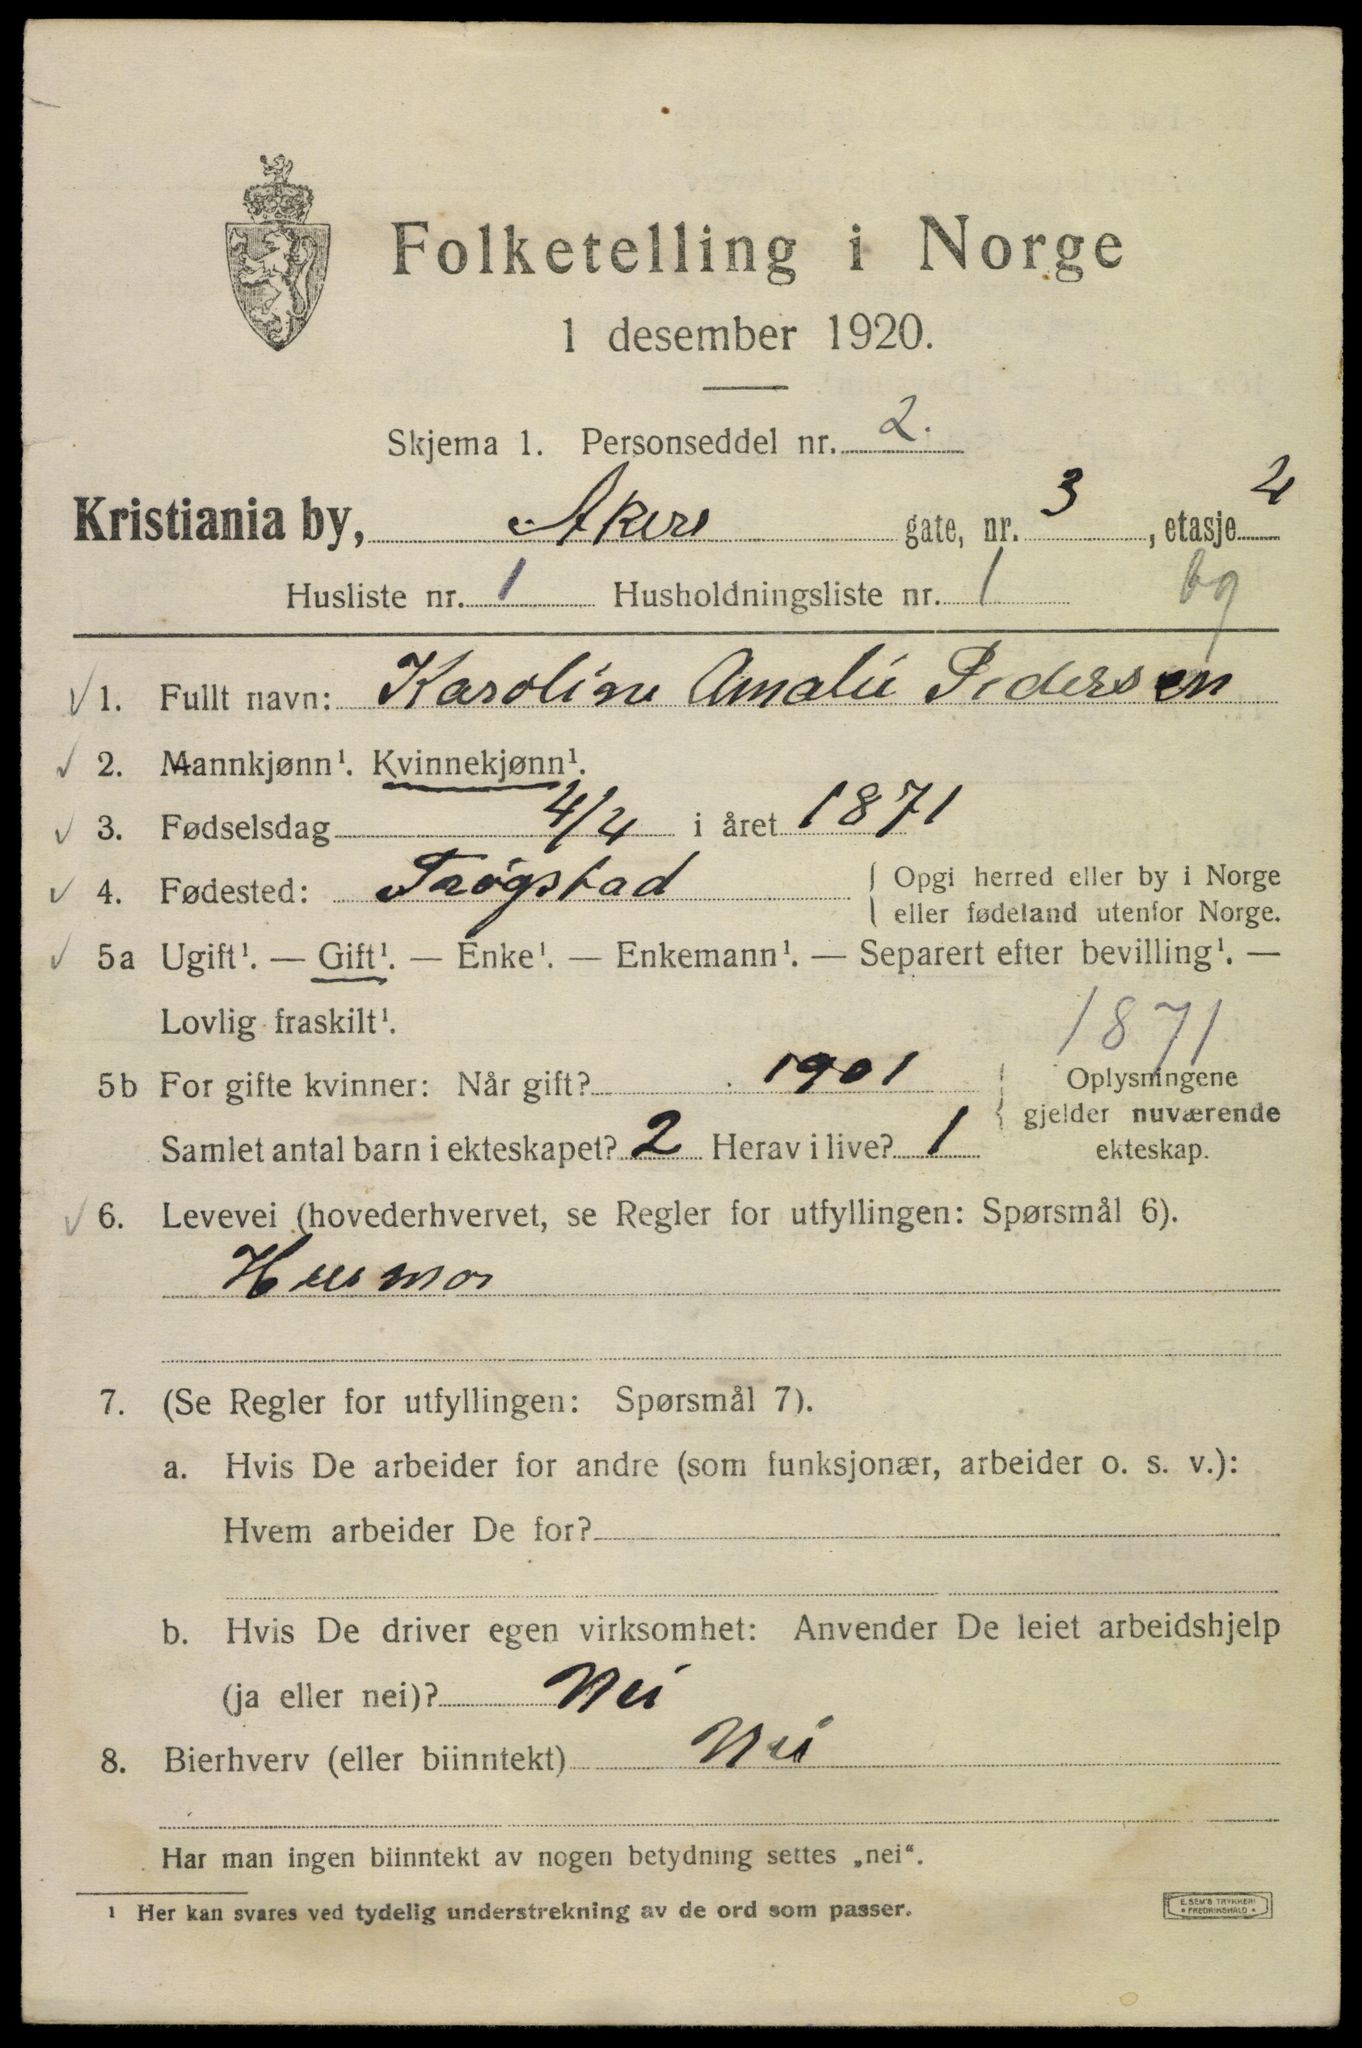 Folketelling i Norge
1 desember 1920.
Skjema 1. Personseddel nr. 2.
Kristiania by, Akers gate, nr. 3, etasje 2
Husliste nr. 1 Husholdningsliste nr. 1 bg
1. Fullt navn: Karoline Amalie Pedersen
2. Mannkjønn¹. Kvinnekjønn¹.
3. Fødselsdag 4/4 i året 1871
4. Fødested: Trøgstad { Opgi herred eller by i Norge
eller fødeland utenfor Norge.
5a Ugift¹. — Gift¹. — Enke¹. — Enkemann¹. — Separert efter bevilling¹. —
Lovlig fraskilt¹.
1871
5b For gifte kvinner: Når gift? 1901 { Oplysningene
gjelder nuværende
Samlet antal barn i ekteskapet? 2 Herav i live? 1 ekteskap.
6. Levevei (hovederhvervet, se Regler for utfyllingen: Spørsmål 6).
Husmor
7. (Se Regler for utfyllingen: Spørsmål 7).
a. Hvis De arbeider for andre (som funksjonær, arbeider o. s. v.):
Hvem arbeider De for?
b. Hvis De driver egen virksomhet: Anvender De leiet arbeidshjelp
(ja eller nei)? Nei
8. Bierhverv (eller biinntekt) Nei
Har man ingen biinntekt av nogen betydning settes „nei“.
¹ Her kan svares ved tydelig understrekning av de ord som passer.
E. SEM'S TRYKKERI
* FREDRIKSHALD *